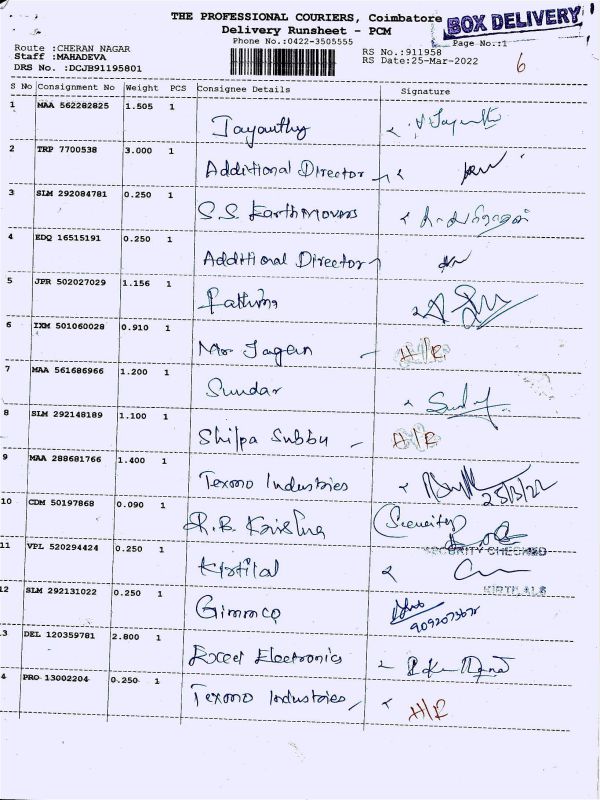 THE PROFESSIONAL COURIERS, Coimbatore
BOX DELIVERY
Delivery Runsheet - PCM
Phone No.:0422-3505555
Page No.:1
Route :CHERAN NAGAR
RS No.:911958
Staff :MAHADEVA
RS Date:25-Mar-2022
6
DRS No. :DCJB91195801
S No Consignment No Weight PCS Consignee Details Signature
1 MAA 562282825 1.505 1
Jayanthy
2 TRP 7700538 3.000 1
Additional Director
3 SLM 292084781 0.250 1
S.S. Earth Movers
4 EDQ 16515191 0.250 1
Additional Director
5 JPR 502027029 1.156 1
Fathima
6 IXM 501060028 0.910 1
Mr Jagan H/R
7 MAA 561686966 1.200 1
Sundar
8 SLM 292148189 1.100 1
Shilpa Subbu H/R
9 MAA 288681766 1.400 1
Texmo Industries 25/3/22
10 CDM 50197868 0.090 1
R.B. Krishna (Security)
11 VPL 520294424 0.250 1
SECURITY CHECKED
Kirtilal
KIRTILALS
12 SLM 292131022 0.250 1
Gimmco
9092073678
3 DEL 120359781 2.800 1
Excel Electronics
4 PRO 13002204 0.250 1
Texmo Industries H/R